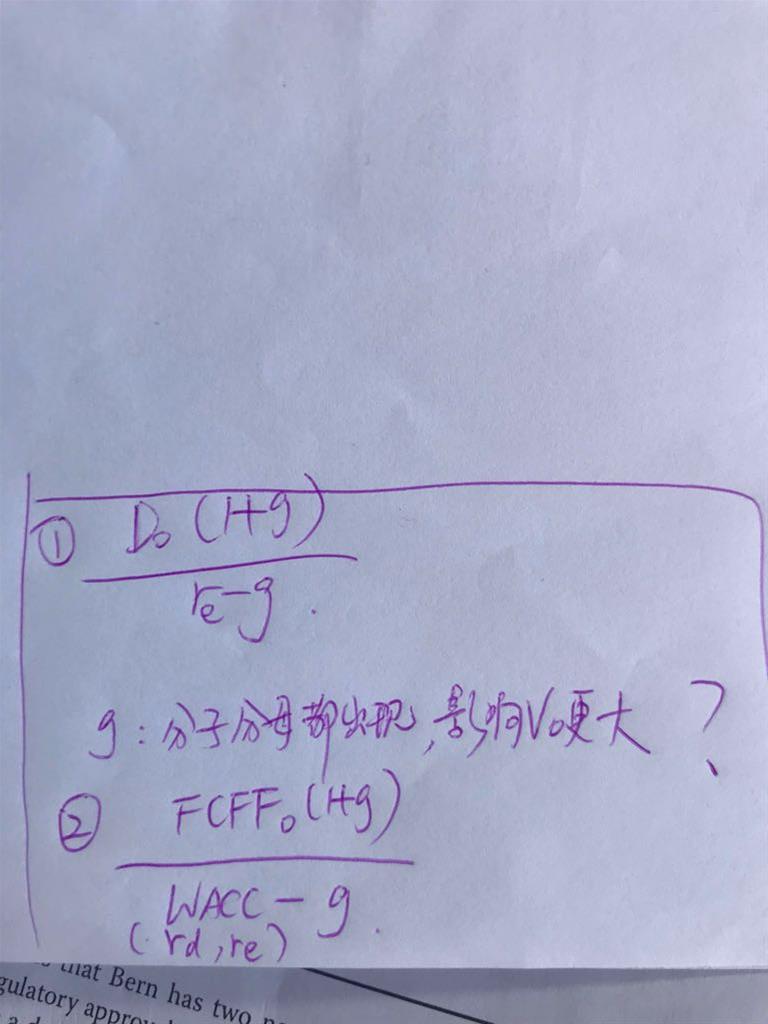 ① D₀ (1+g)
re-g.
g:分子分母都出现,影响V₀更大?
② FCFF₀(1+g)
WACC-g.
(rd,re)
that Bern has two
gulatory approv